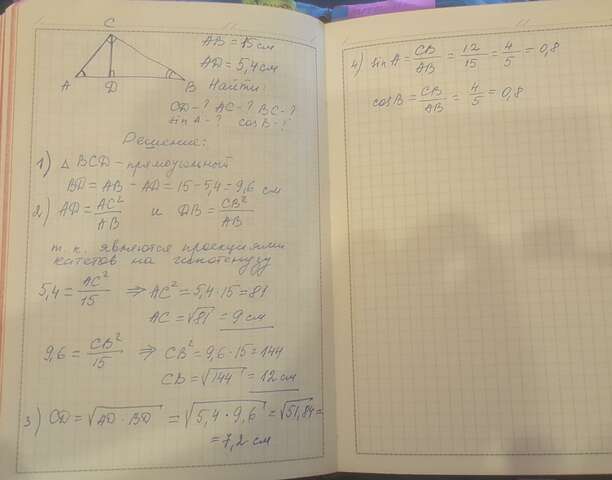 C
A
D
B
AB = 15 см
AD = 5,4 см
Найти:
CD - ? AC - ? BC - ?
sin A - ? cos B - ?
Решение:
1) △ BCD - прямоугольный
BD = AB - AD = 15 - 5,4 = 9,6 см
2) AD = AC²/AB и DB = CB²/AB
т.к. являются проекциями
катетов на гипотенузу
5,4 = AC²/15 ⇒ AC² = 5,4·15 = 81
AC = √81 = 9 см
9,6 = CB²/15 ⇒ CB² = 9,6·15 = 144
CB = √144 = 12 см
3) CD = √AD·BD = √5,4·9,6 = √51,84 =
= 7,2 см
4) sin A = CB/AB = 12/15 = 4/5 = 0,8
cos B = CB/AB = 4/5 = 0,8